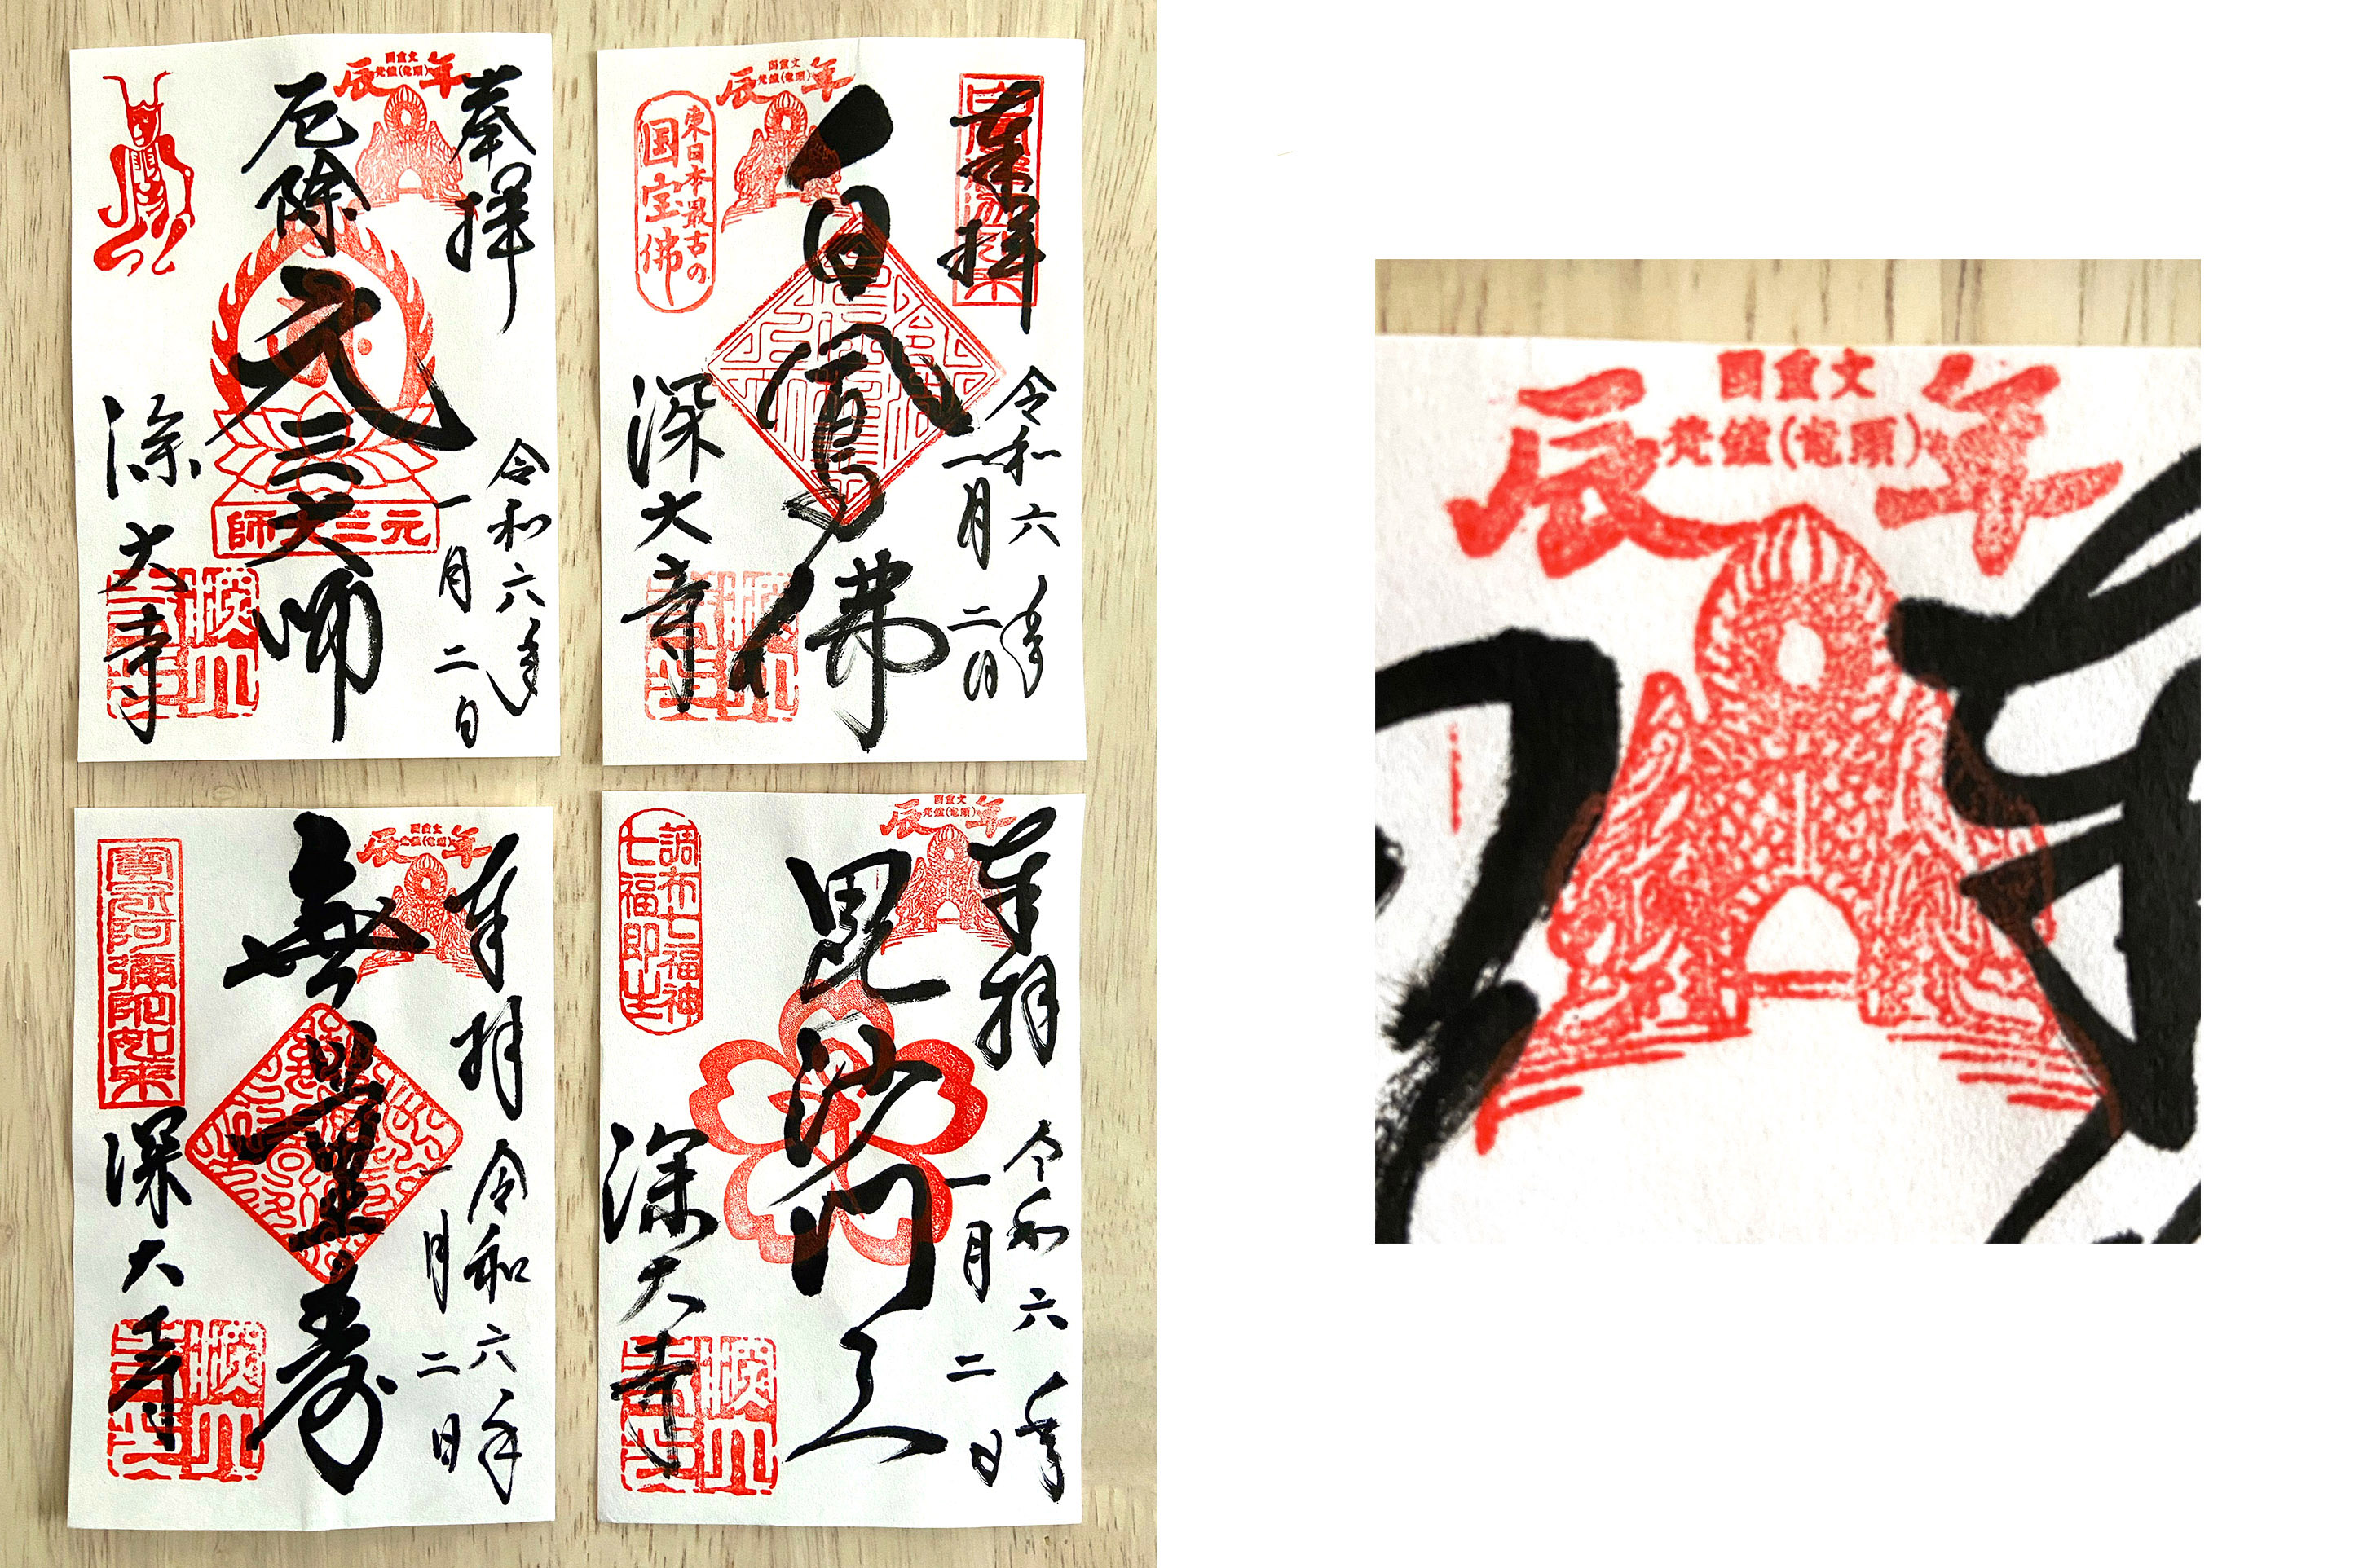 奉拝
令和六年
一月二日
辰年
国重文
梵鐘(竜頭)
厄除
元三大師
元三大師
深大寺
奉拝
令和六年
一月二日
辰年
国重文
梵鐘(竜頭)
白鳳佛
東日本最古の
国宝佛
深大寺
奉拝
令和六年
一月二日
辰年
国重文
梵鐘(竜頭)
無量寿
寳冠阿彌陀如来
深大寺
奉拝
令和六年
一月二日
辰年
国重文
梵鐘(竜頭)
毘沙門天
調布七福神
七福即生
深大寺
辰年
国重文
梵鐘(竜頭)